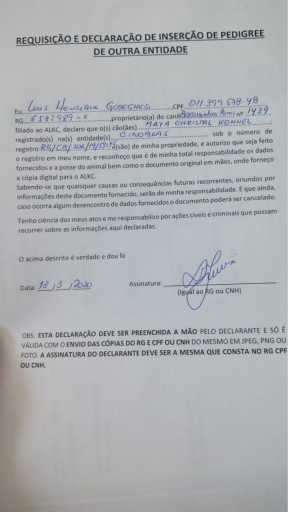 REQUISIÇÃO E DECLARAÇÃO DE INSERÇÃO DE PEDIGREE
DE OUTRA ENTIDADE
Eu, Luis Henrique CPF 011.399.578.48
RG ,proprietário(a) do canil nº 1439
filiado ao ALKC, declaro que o(s) cão(ães) MAYA CHRISTAL KENNEL
registrado(s) na(s) entidade(s) sob o número de
registro (são) de minha propriedade, e autorizo que seja feito
o registro em meu nome, e reconheço que é de minha total responsabilidade os dados
fornecidos e a posse do animal bem como o documento original em mãos, onde forneço
a cópia digital para o ALKC.
Sabendo-se que quaisquer causas ou consequências futuras recorrentes, oriundos por
informações deste documento fornecido, serão de minha responsabilidade. E que ainda,
caso ocorra algum desencontro de dados fornecidos o documento poderá ser cancelado.
Tenho ciência dos meus atos e me responsabilizo por ações cíveis e criminais que possam
recorrer sobre as informações aqui declaradas.
O acima descrito é verdade e dou fá
Data: 13/3/2020 Assinatura:
(Igual ao RG ou CNH)
OBS: ESTA DECLARAÇÃO DEVE SER PREENCHIDA A MÃO PELO DECLARANTE E SÓ É
VÁLIDA COM O ENVIO DAS CÓPIAS DO RG E CPF OU CNH DO MESMO EM JPEG, PNG OU
FOTO. A ASSINATURA DO DECLARANTE DEVE SER A MESMA QUE CONSTA NO RG CPF
OU CNH.